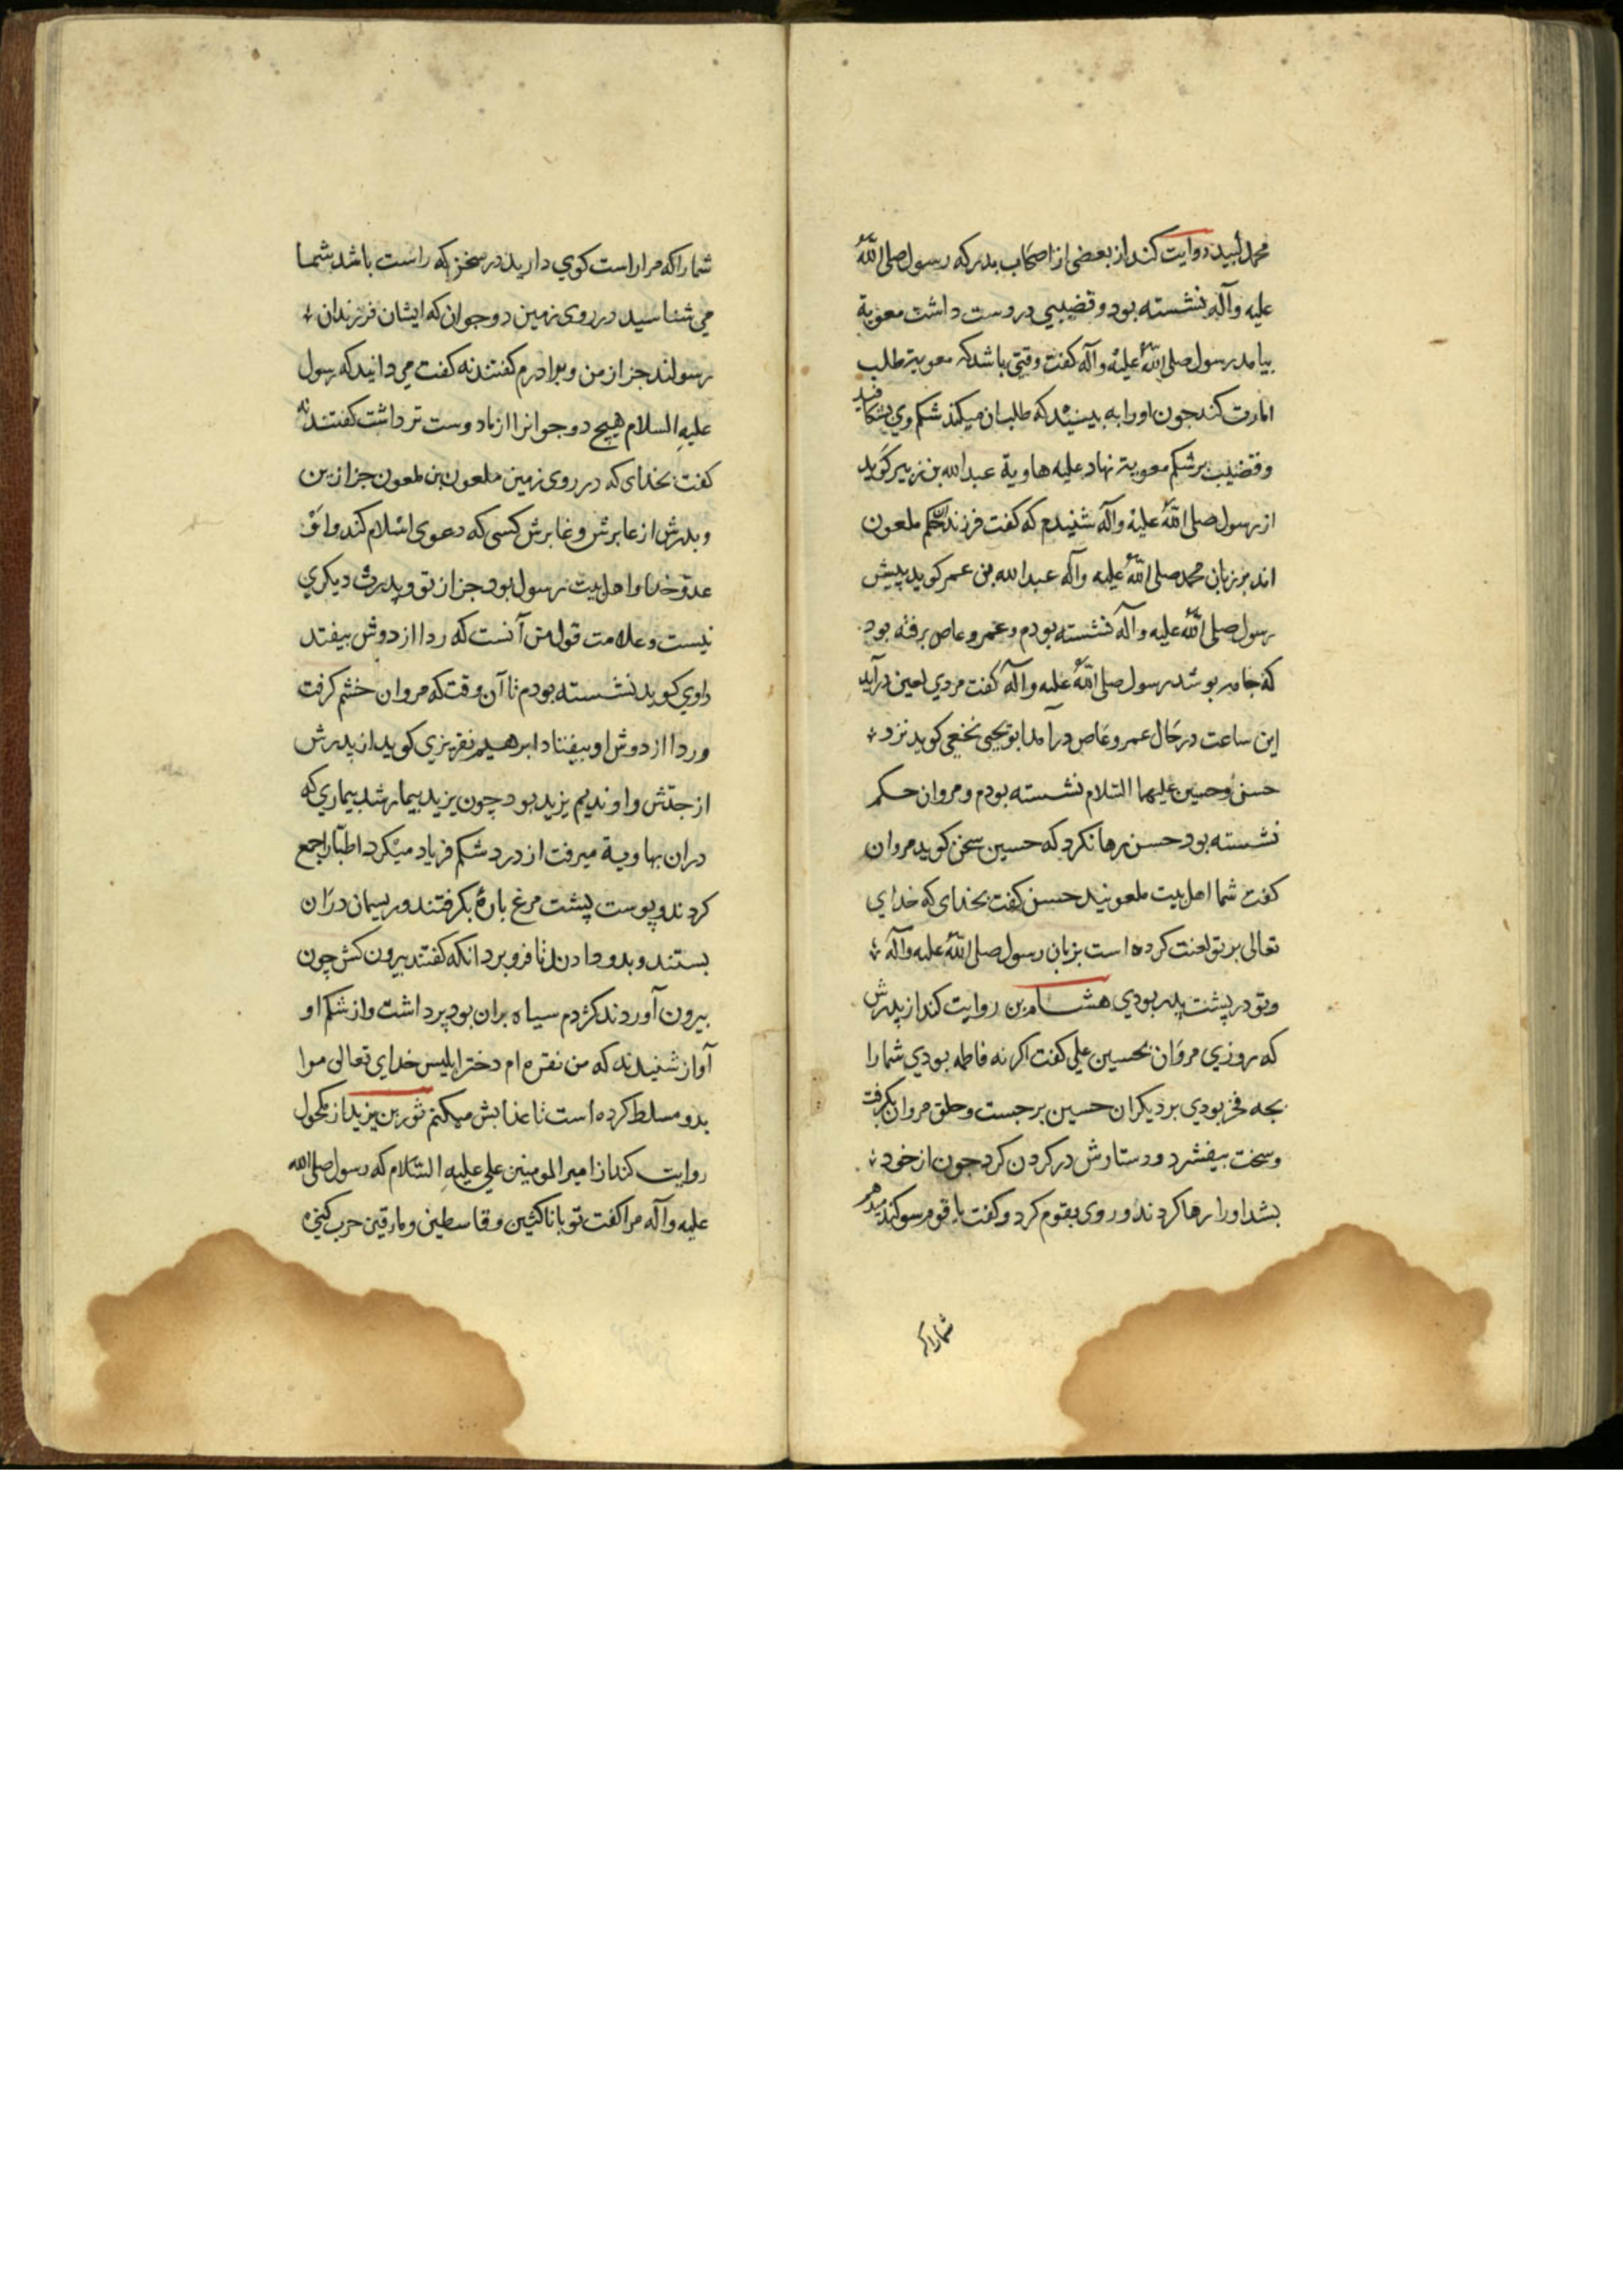 محمد لبید روایت کند از بعضی از اصحاب بدر که رسول صلی الله
علیه وآله نشسته بود و قضیبی در دست داشت معویة
بیامد رسول صلی الله علیه وآله کفت وقتی باشد که معویة طلب
امارت کند جون اورا به بینید که طلب ان میکند شکم وی بشکافید
و قضیب بر شکم معویة نهاد علیه هاویة عبدالله بن زبیر کوید
از رسول صلی الله علیه وآله شنیدم که کفت فرزندان حکم ملعون
اند بر زبان محمد صلی الله علیه وآله عبدالله بن عمر کوید پیش
رسول صلی الله علیه وآله نشسته بودم و عمرو عاص برفته بود
که جامه بوشد رسول صلی الله علیه وآله کفت مردی لعین درآید
این ساعت در حال عمرو عاص درآمد ابو یحیی نخعی کوید نزد
حسن و حسین علیهما السلام نشسته بودم و مروان حکم
نشسته بود حسن رها نکرد که حسین سخن کوید مروان
کفت شما اهل بیت ملعونید حسن کفت بخدای که خدای
تعالی بر تو لعنت کرده است بزبان رسول صلی الله علیه وآله
وتو در پشت پدر بودی هشام بن روایت کند از پدرش
که روزی مروان بحسین علی کفت اکر نه فاطمه بودی شما را
بجه فخر بودی بر دیکران حسین برجست و حلق مروان بکرفت
و سخت بیفشرد و دستارش در کردن کرد جون از خود
بشد اورا رها کردند و روی بقوم کرد و کفت یا قوم سوکند میدهم
شمارا که
شمارا که مرا راست کوی دارید در سخن که راست باشد شما
می شناسید در روی زمین دو جوان که ایشان فرزندان
رسولند جز از من و برادرم کفتند نه کفت می دانید که رسول
علیه السلام هیچ دو جوانرا از ما دوست تر داشت کفتند نه
کفت بخدای که در روی زمین ملعون بن ملعون جز از من
و بدرش از عابرش و غابرش کسی که دعوی اسلام کند واو
عدو خدا واهل بیت رسول بود جز از تو و پدرت دیکری
نیست و علامت قول من آنست که ردا از دوش بیفتد
راوی کوید نشسته بودم تا آن وقت که مروان خشم کرفت
و ردا از دوش او بیفتاد ابرهیم نقریزی کوید از پدرش
از جدش واو ندیم یزید بود چون یزید بیمار شد بیماری که
دران بهاویة میرفت از درد شکم فریاد میکرد اطبا را جمع
کردند و پوست پشت مرغ بارهٔ بکرفتند و ریسمان دران
بستند و بدو دادند تا فرو برد انکه کفتند بیرون کش چون
بیرون آوردند کژدم سیاه بران بود برداشت واز شکم او
آواز شنیدند که من نقره ام دختر ابلیس خدای تعالی مرا
بدو مسلط کرده است تا عذابش میکنم ثور بن یزید از مکحول
روایت کند از امیر المومنین علی علیه السلام که رسول صلی الله
علیه وآله مرا کفت تو با ناکثین و قاسطین و مارقین حرب کنی